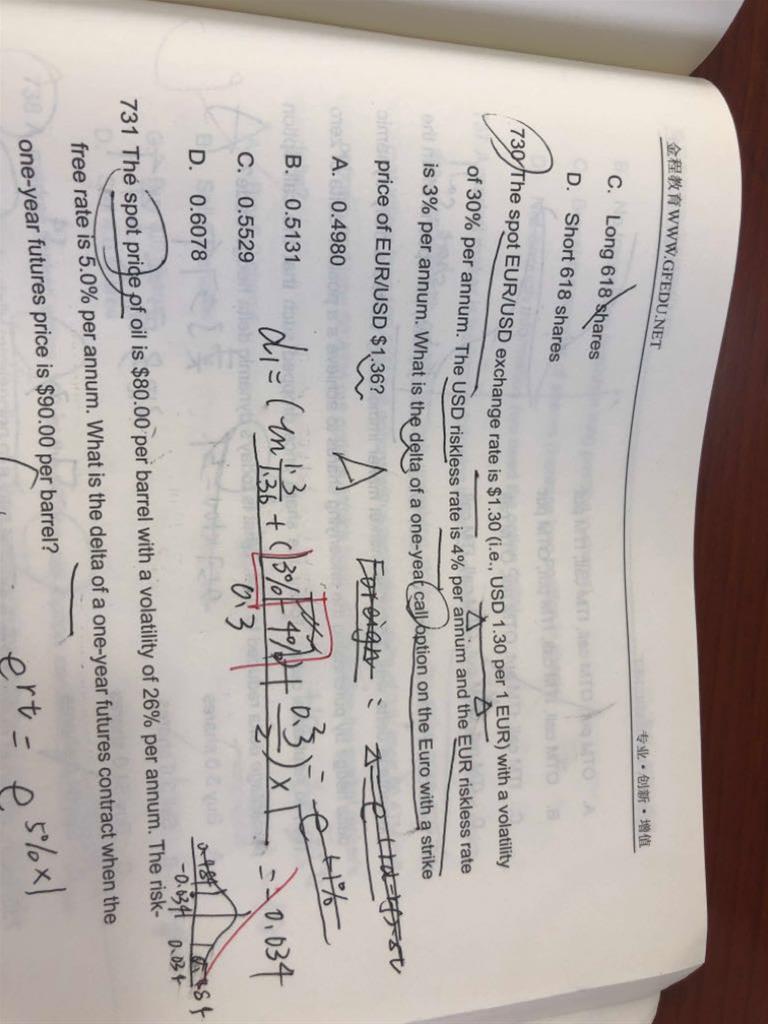 金程教育WWW.GFEDU.NET
专业·创新·增值
C. Long 618 shares
D. Short 618 shares
730 The spot EUR/USD exchange rate is $1.30 (i.e., USD 1.30 per 1 EUR) with a volatility
of 30% per annum. The USD riskless rate is 4% per annum and the EUR riskless rate
is 3% per annum. What is the delta of a one-year call option on the Euro with a strike
price of EUR/USD $1.36?
A. 0.4980
B. 0.5131
C. 0.5529
D. 0.6078
Foreign :
e 1%
d₁ = (ln 1.3/1.36 + (3% - 4%) + 0.3²/2) × 1 / 0.3 = -0.034
-0.034 0.034
731 The spot price of oil is $80.00 per barrel with a volatility of 26% per annum. The risk-
free rate is 5.0% per annum. What is the delta of a one-year futures contract when the
one-year futures price is $90.00 per barrel?
e rt = e 5%×1